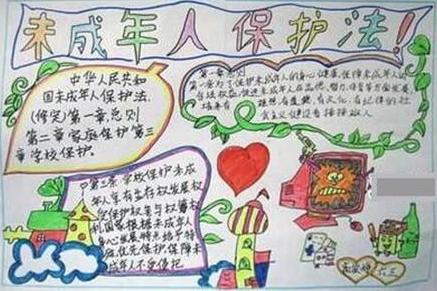 未成年人保护法!
中华人民共和
国未成年人保护法.
(修突)第一章总则
第二章家庭保护第三
章学校保护。
第一章总则
第一条为了保护未成年人的身心健康,保障未成年人的
合法权益,促进未成年人在品德、智力、体育等方面
培养有理想、有道德、有文化、有纪律的社
会主义建设者接接班人
第三条 学校保护未成
年人享有生存权发展权
受保护权
利国家根据未成年人
身心发展特点给予特
殊优先保护保障未
成年人不受侵犯
六三